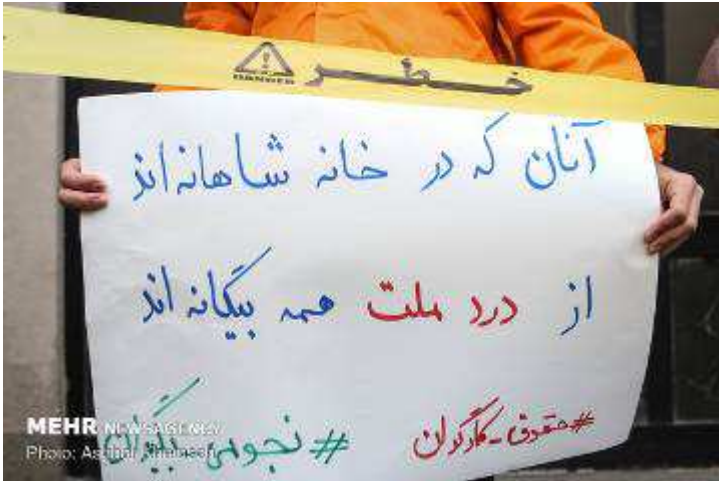 خطر
DANGER
آنان که در خانه شاهانه‌اند
از درد ملت همه بیگانه اند
#حقوق_کارگران
#نجومی_بگیران
MEHR NEWSAGENCY
Photo: